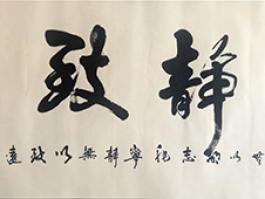 靜致
以明志非寧靜無以致遠